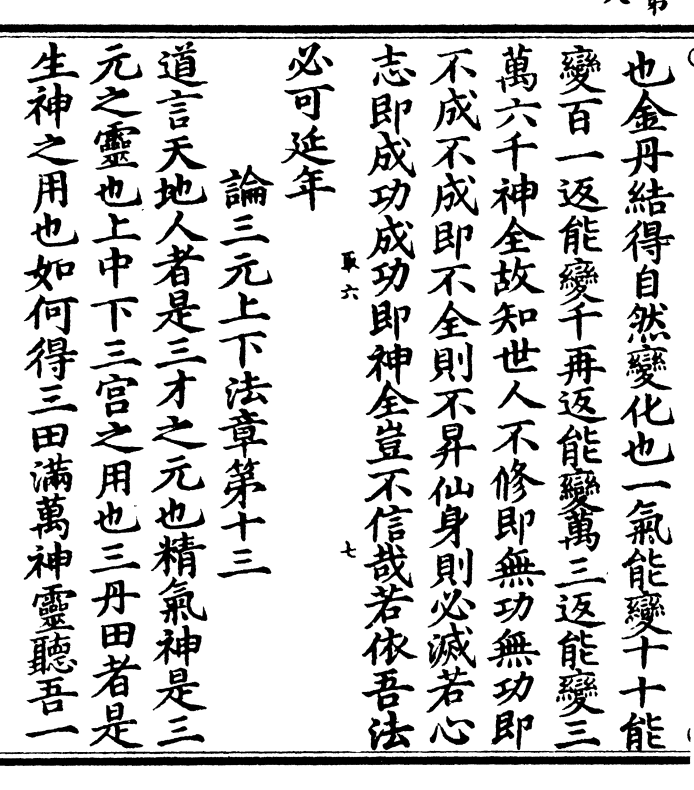 也金丹結得自然變化也一氣能變十十能
變百一返能變千再返能變萬三返能變三
萬六千神全故知世人不修即無功無功即
不成不成即不全則不昇仙身則必滅若心
志即成功成功即神全豈不信哉若依吾法
六 七
必可延年
論三元上下法章第十三
道言天地人者是三才之元也精氣神是三
元之靈也上中下三宮之用也三丹田者是
生神之用也如何得三田滿萬神靈聽吾一